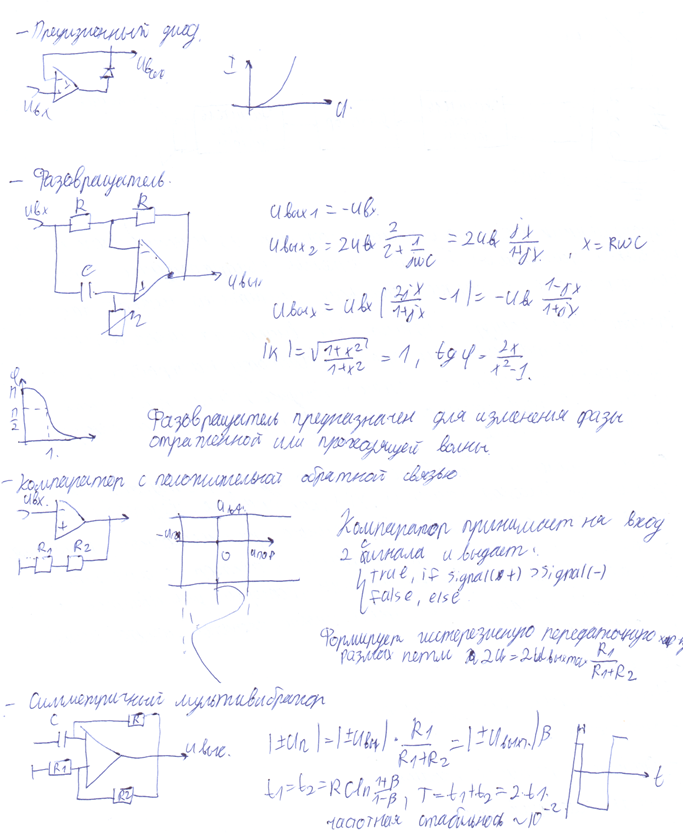 – Прецизионный диод.
Uвых
Uвх
I
U
– Фазовращатель.
Uвх
R
R
C
Uвых
r
Uвых1 = -Uвх
Uвых2 = 2Uвх 2/(2 + 1/jωC) = 2Uвх jx/(1+jx), x = RωC
Uвых = Uвх(2jx/(1+jx) - 1) = -Uвх (1-jx)/(1+jx)
|K| = √((1+x²)/(1+x²)) = 1, tg φ = 2x/(x²-1).
φ
π
π/2
1.
Фазовращатель предназначен для изменения фазы
отраженной или проходящей волны
– Компаратор с положительной обратной связью
Uвх.
R1
R2
-Uпор
0
Uпор
Компаратор принимает на вход
2 сигнала и выдает:
{ True, if signal(+) > signal(-)
False, else.
Формирует гистерезисную передаточную хар-ку
размах петли
R1/(R1+R2)
– Симметричный мультивибратор
C
R
R1
R2
Uвых.
|±Uп| = |±Uвых| · R1/(R1+R2) = |±Uвып.|β
t1 = t2 = RC ln (1+β)/(1-β), T = t1 + t2 = 2·t1.
частотная стабильность ~10⁻²
t